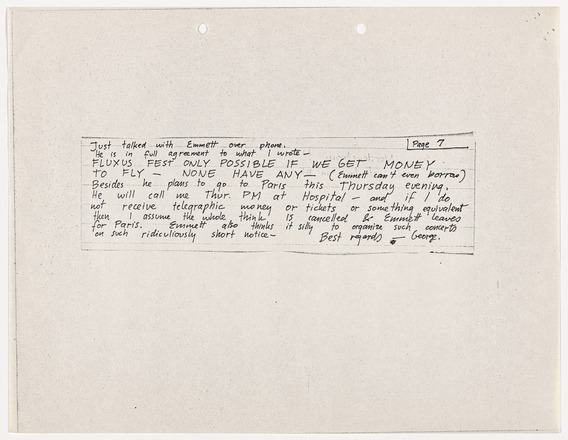 Just talked with Emmett over phone.
Page 7
He is in full agreement to what I wrote —
FLUXUS FEST ONLY POSSIBLE IF WE GET MONEY
TO FLY — NONE HAVE ANY — (Emmett can't even borrow)
Besides he plans to go to Paris this Thursday evening.
He will call me Thur. PM at Hospital — and if I do
not receive telegraphic money or tickets or something equivalent
then I assume the whole think is cancelled & Emmett leaves
for Paris. Emmett also thinks it silly to organize such concerts
on such ridiculiously short notice —
Best regards — George.